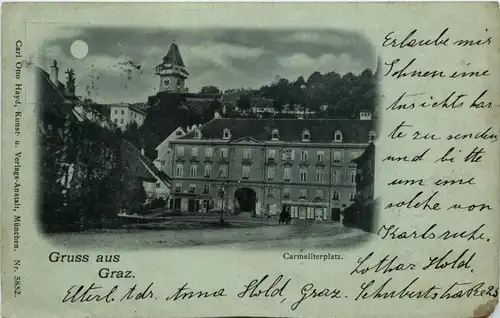 Carl Otto Hayd, Kunst- u. Verlags-Anstalt, München. Nr. 5852.
Gruss aus
Graz.
Carmeliterplatz.
Erlaube mir
Ihnen eine
Ansichtskar
te zu senden
und bitte
um eine
solche von
Karlsruhe.
Lothar Hold
Adr. Anna Hold, Graz. Schubertstraße 23